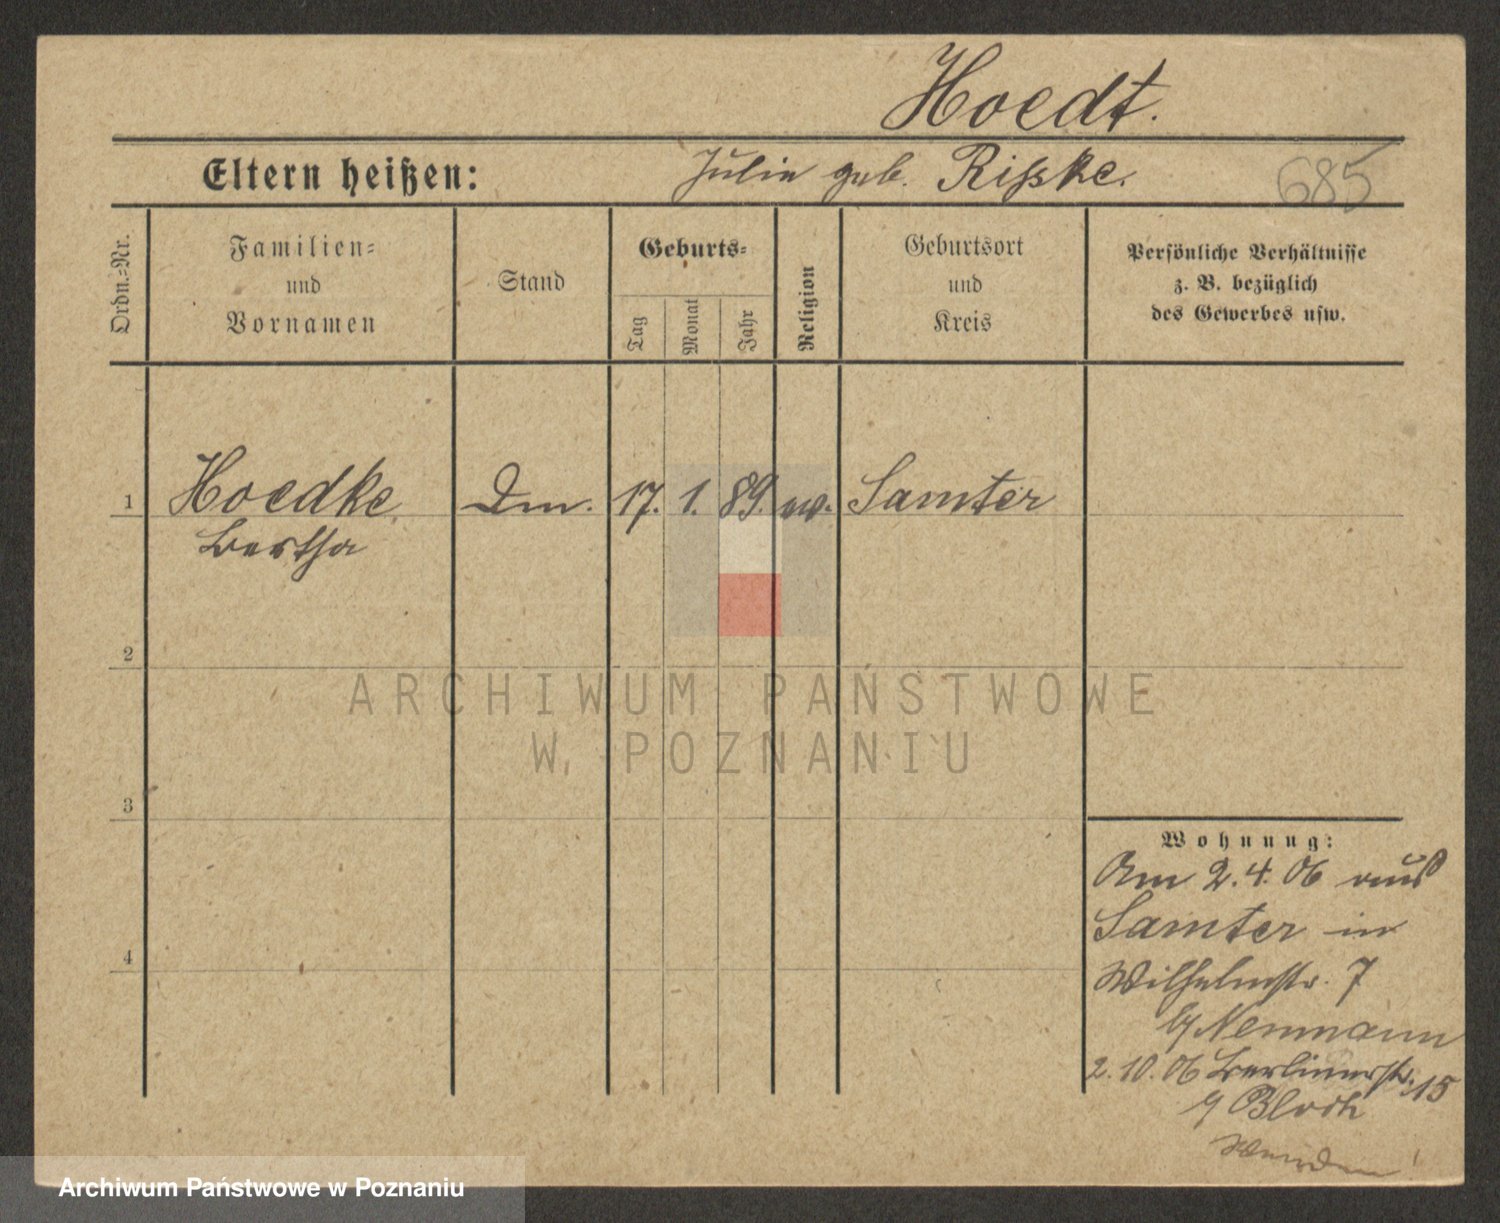 Hoedt.
Eltern heißen: Julie geb. Rißke.
685
Ordn.=Nr.
Familien=
und
Vornamen
Stand
Geburts=
Tag
Monat
Jahr
Religion
Geburtsort
und
Kreis
Persönliche Verhältnisse
z. B. bezüglich
des Gewerbes usw.
1 Hoedke Dm. 17. 1. 89. ev. Samter
Bertha
2
3
4
Wohnung:
Am 2.4.06 aus
Samter in
Wilhelmstr. 7
b/ Neumann
2.10.06 Berlinerstr. 15
b/ Bloch
Wenden!
ARCHIWUM PAŃSTWOWE
W POZNANIU
Archiwum Państwowe w Poznaniu